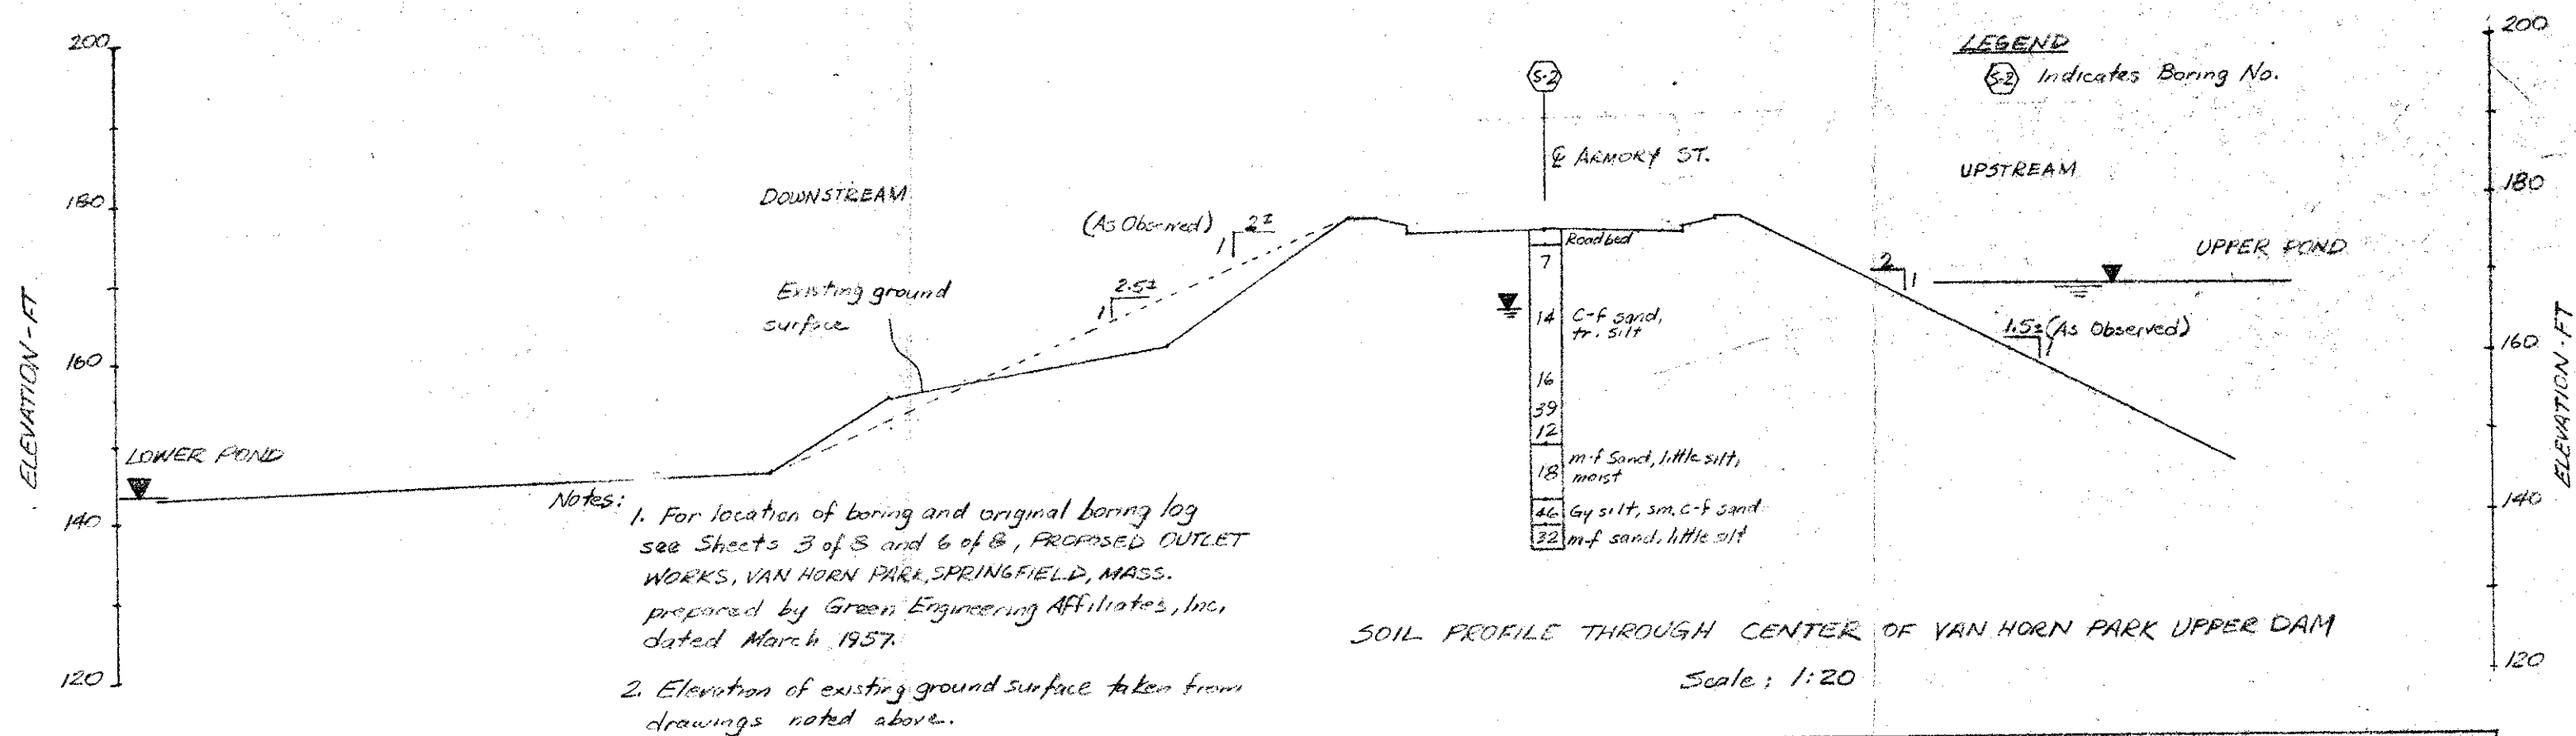 200
180
160
140
120
ELEVATION - FT
LOWER POND
DOWNSTREAM
Existing ground
surface
(As Observed)
1 2±
1 2.5±
S-2
℄ ARMORY ST.
Roadbed
7
14 C-f sand,
tr. silt
16
39
12
18 m-f Sand, little silt,
moist
46 Gy silt, sm. c-f sand
32 m-f sand, little silt
LEGEND
S-2 Indicates Boring No.
UPSTREAM
UPPER POND
2
1
1.5± (As Observed)
1
200
180
160
140
120
ELEVATION - FT
Notes:
1. For location of boring and original boring log
see Sheets 3 of 8 and 6 of 8, PROPOSED OUTLET
WORKS, VAN HORN PARK, SPRINGFIELD, MASS.
prepared by Green Engineering Affiliates, Inc,
dated March 1957.
2. Elevation of existing ground surface taken from
drawings noted above.
SOIL PROFILE THROUGH CENTER OF VAN HORN PARK UPPER DAM
Scale: 1:20